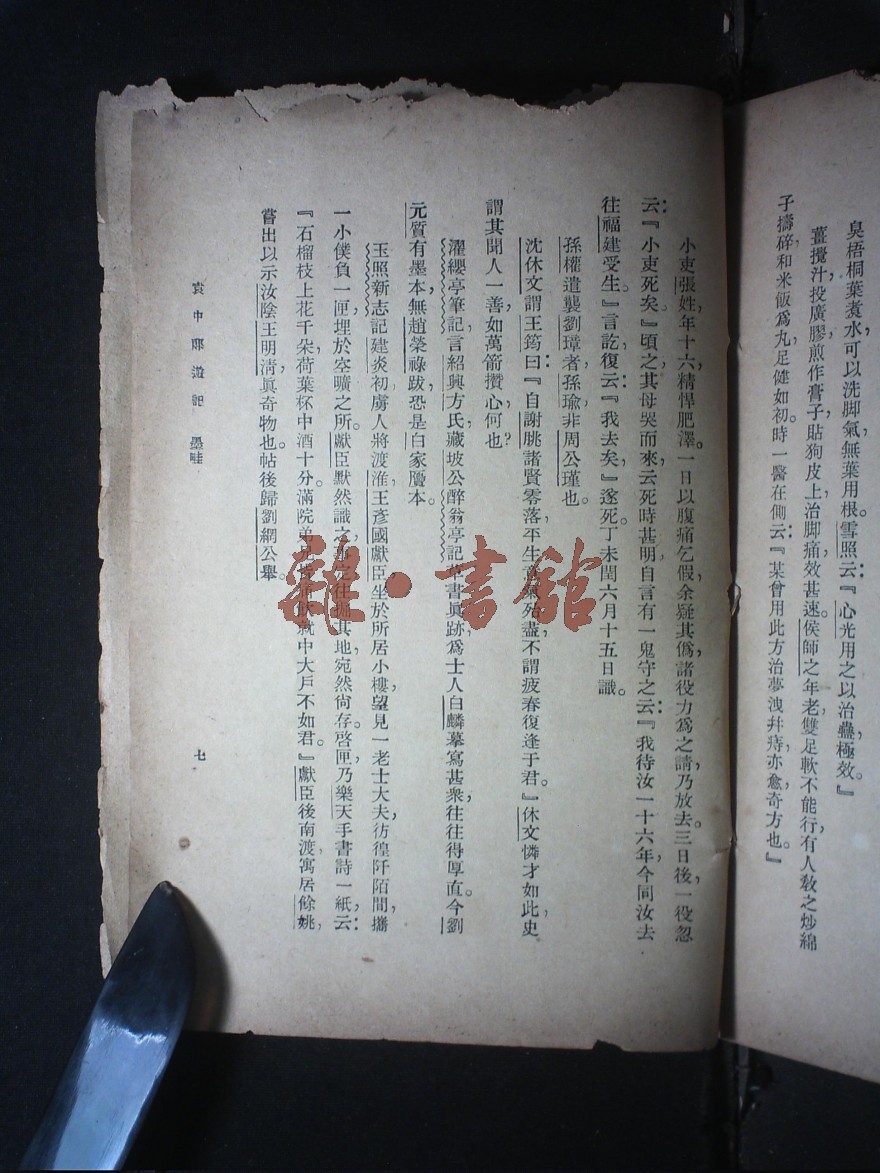 臭梧桐葉煮水可以洗脚氣，無葉用根。雪照云：『心光用之以治蠱極效。』
薑攪汁投廣膠煎作膏子，貼狗皮上，治脚痛效甚速。侯師之年老，雙足軟不能行，有人敎之炒綿
子擣碎和米飯爲丸，足健如初。時一醫在側，云：『某曾用此方治夢洩幷痔亦愈，奇方也。』
小吏張姓，年十六，精悍肥澤。一日以腹痛乞假，余疑其僞，諸役力爲之請，乃放去。三日後，一役忽
云：『小吏死矣。』頃之，其母哭而來，云死時甚明，自言有一鬼守之，云：『我待汝一十六年，今同汝去
往福建受生。』言訖，復云：『我去矣』，遂死。丁未閏六月十五日識。
孫權遣襲劉璋者，孫瑜，非周公瑾也。
沈休文謂王筠曰：『自謝朓諸賢零落，平生意氣殆盡，不謂疲春復逢于君。』休文憐才如此，史
謂其聞人一善，如萬箭攢心，何也？
濯纓亭筆記言紹興方氏藏坡公醉翁亭記草書眞跡，爲士人白麟摹寫甚衆，往往得厚直。今劉
元質有墨本，無趙榮祿跋，恐是白家贋本。
玉照新志記建炎初虜人將渡淮，王彥國獻臣坐於所居小樓，望見一老士大夫彷徨阡陌間，攜
一小僕負一匣，埋於空曠之所。獻臣默然識之，定往掘其地，宛然尙存。啓匣，乃樂天手書詩一紙，云：
『石榴枝上花千朵，荷葉杯中酒十分。滿院弟就中大戶不如君。』獻臣後南渡，寓居餘姚，
嘗出以示汝陰王明淸，眞奇物也。帖後歸劉綱公舉。
袁中郎遊記　墨畦
七
雜·書館